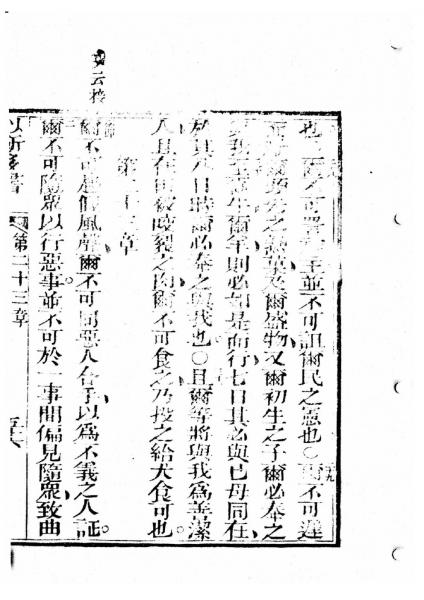 也爾不可詈主並不可詛爾民之憲也○爾不可遲
之熟菓及爾盛物又爾初生之子爾必奉之
爾羊則必如是而行七日其必與己母同在
於其八日時爾必奉之與我也○且爾等將與我為善潔
人且在田被裂之肉爾不可食之乃投之給犬食可也。
第二十三章
云接
爾不可起假風聲爾不可同惡人合手以為不義之人証。
爾不可隨眾以行惡事並不可於一事間偏見隨眾致曲
以所多書 第二十三章